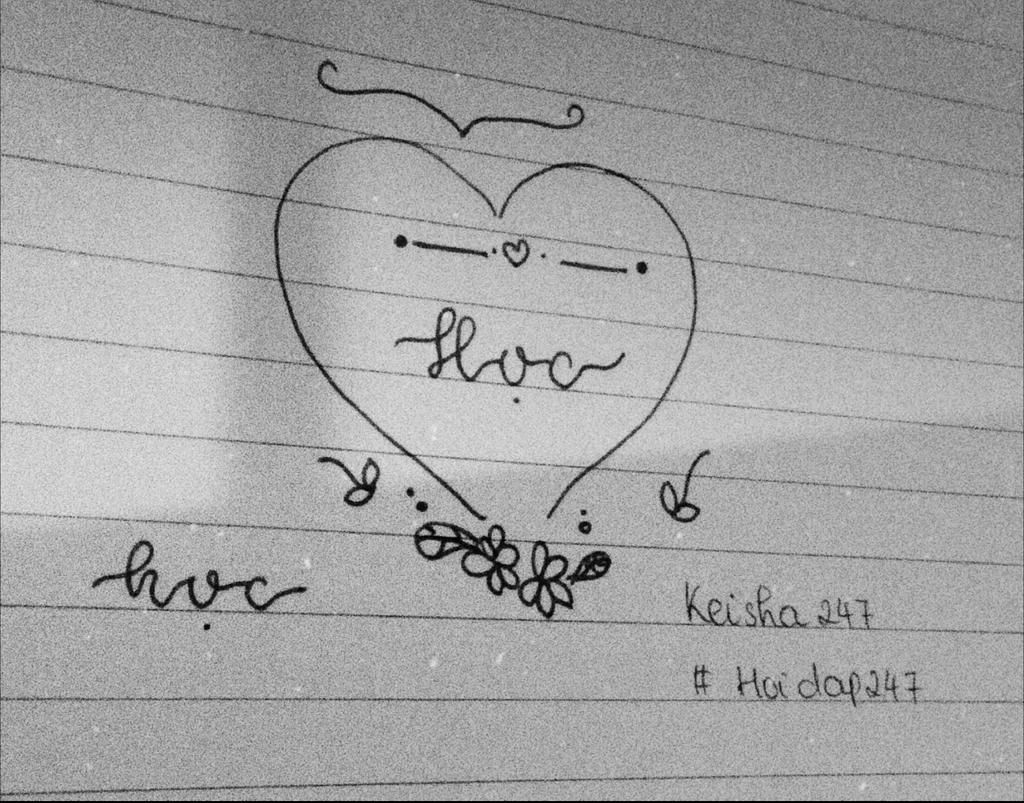 Học
học
Keisha 247
# Hoidap247